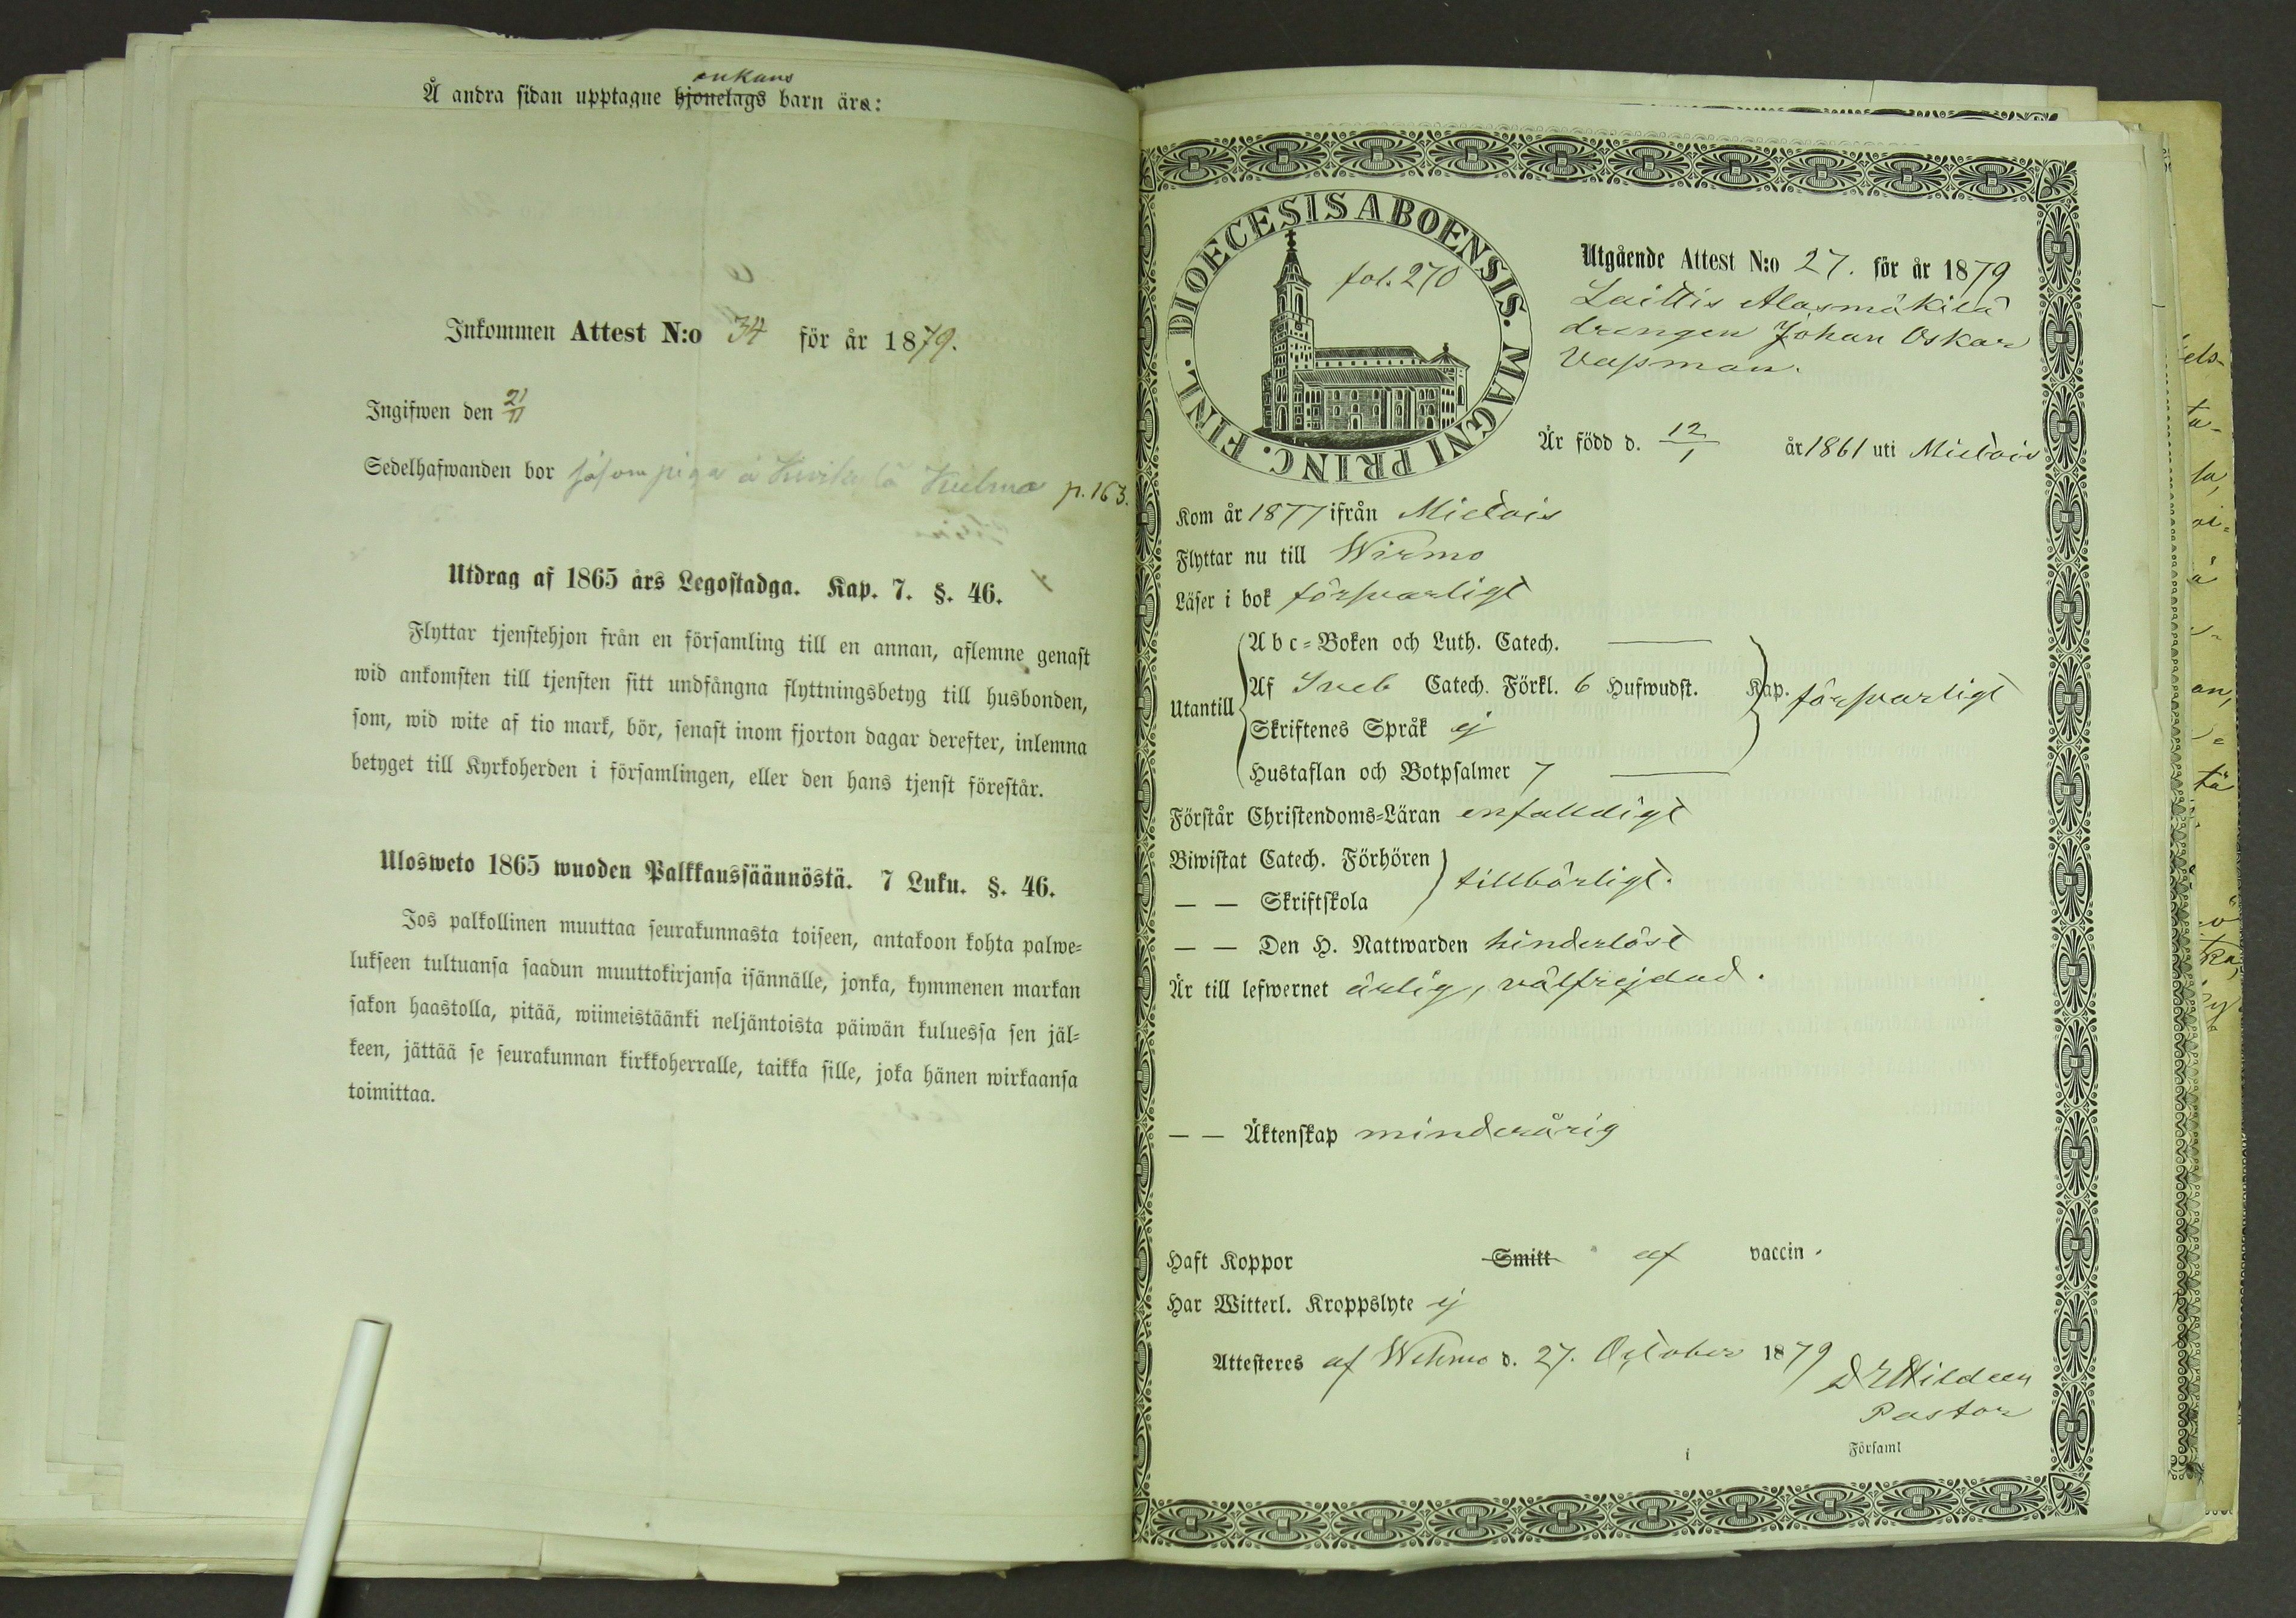 enkans
Å andra sidan upptagne hjonelags barn äro:
Inkommen Attest N:o 34 för år 1879.
Ingifwen den 21/11
Sedelhafwanden bor såsom piga å p. 163.
Utdrag af 1865 års Legostadga. Kap. 7. §. 46.
Flyttar tjenstehjon från en församling till en annan, aflemne genast
wid ankomsten till tjensten sitt undfångna flyttningsbetyg till husbonden,
som, wid wite af tio mark, bör, senast inom fjorton dagar derefter, inlemna
betyget till Kyrkoherden i församlingen, eller den hans tjenst förestår.
Ulosweto 1865 wuoden Palkkaussäännöstä. 7 Luku. §. 46.
Jos palkollinen muuttaa seurakunnasta toiseen, antakoon kohta palwe=
lukseen tultuansa saadun muuttokirjansa isännälle, jonka, kymmenen markan
sakon haastolla, pitää, wiimeistäänki neljäntoista päiwän kuluessa sen jäl=
keen, jättää se seurakunnan kirkkoherralle, taikka sille, joka hänen wirkaansa
toimittaa.
DIOECESIS ABOENSIS. MAGNI PRINC. FINL.
fol. 270
Utgående Attest N:o 27. för år 1879
Laittis Alasmäkilä
drengen Johan Oskar
Vassman.
Är född d. 12/1 år 1861 uti Mietois
Kom år 1877 ifrån Mietois
Flyttar nu till Wirmo
Läser i bok försvarligt
Abc=Boken och Luth. Catech.
Utantill
Af Sveb Catech. Förkl. 6 Hufwudst. Kap. försvarligt
Skriftenes Språk ej
Hustaflan och Botpsalmer 7
Förstår Christendoms=Läran enfalldigt
Biwistat Catech. Förhören
tillbörligt.
— — Skriftskola
— — Den H. Nattwarden hinderlöst
Är till lefwernet ärlig, välfrejdad.
— — Äktenskap minderårig
Haft Koppor Smitt af vaccin.
Har Witterl. Kroppslyte ej
Attesteres af Wehmo d. 27. October 1879
Pastor
i Församl